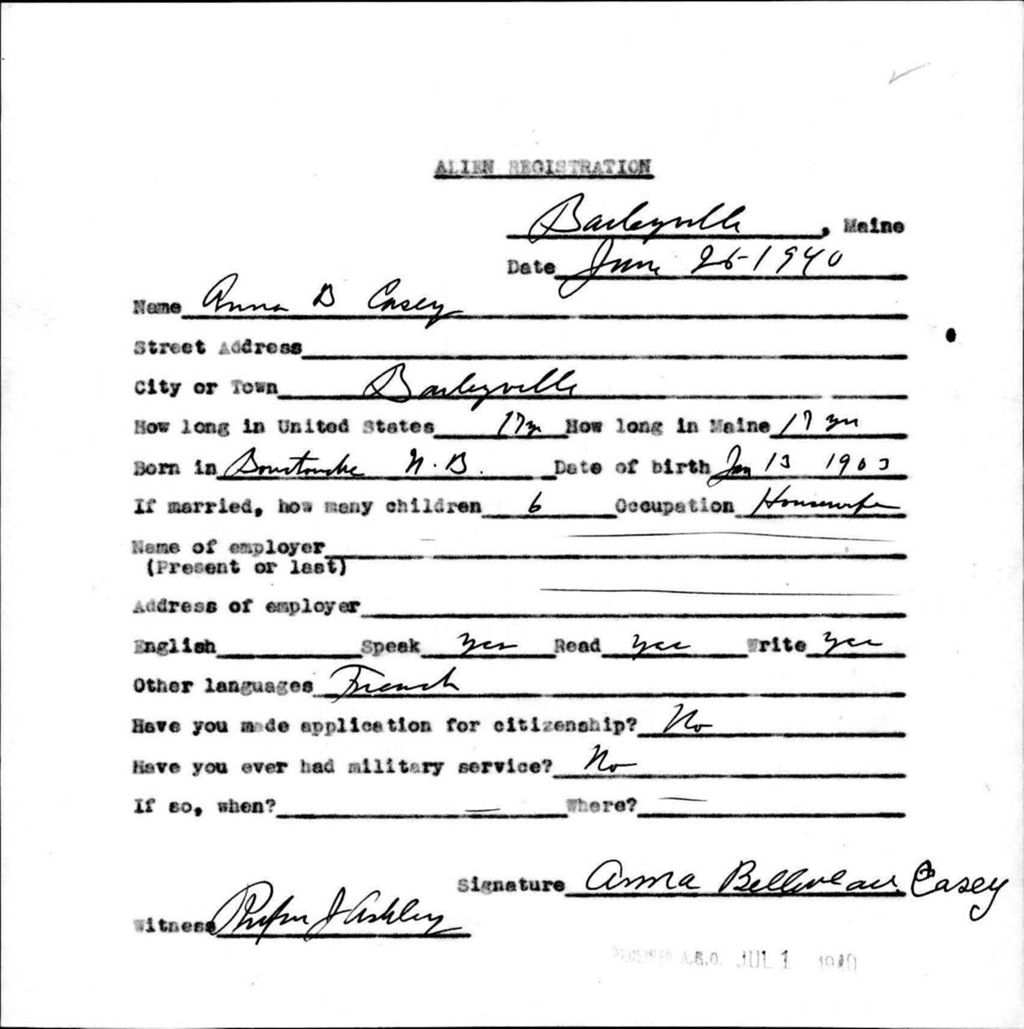 ALIEN REGISTRATION
Baileyville, Maine
Date June 26-1940
Name Anna B Casey
Street Address
City or Town Baileyville
How long in United States 17 yr How long in Maine 17 yrs
Born in Bouctouche N.B. Date of birth Jan 13 1903
If married, how many children 6 Occupation Housewife
Name of employer
(Present or last)
Address of employer
English Speak yes Read yes Write yes
Other languages French
Have you made application for citizenship? No
Have you ever had military service? No
If so, when? Where?
Signature Anna Belliveau Casey
Witness J Ashley
RECEIVED A.G.O. JUL 1 1940